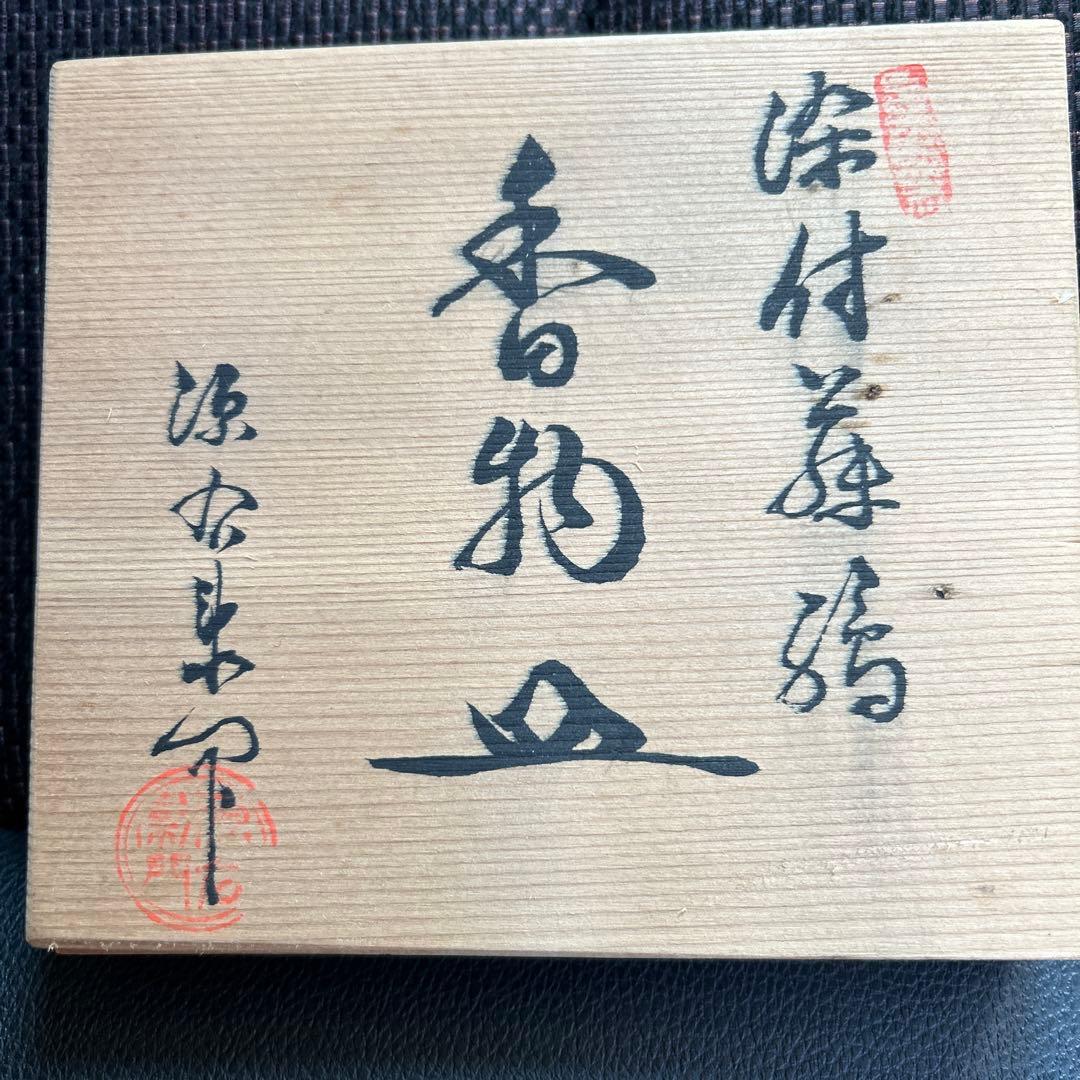 染付藤絵
香物皿
源右衛門